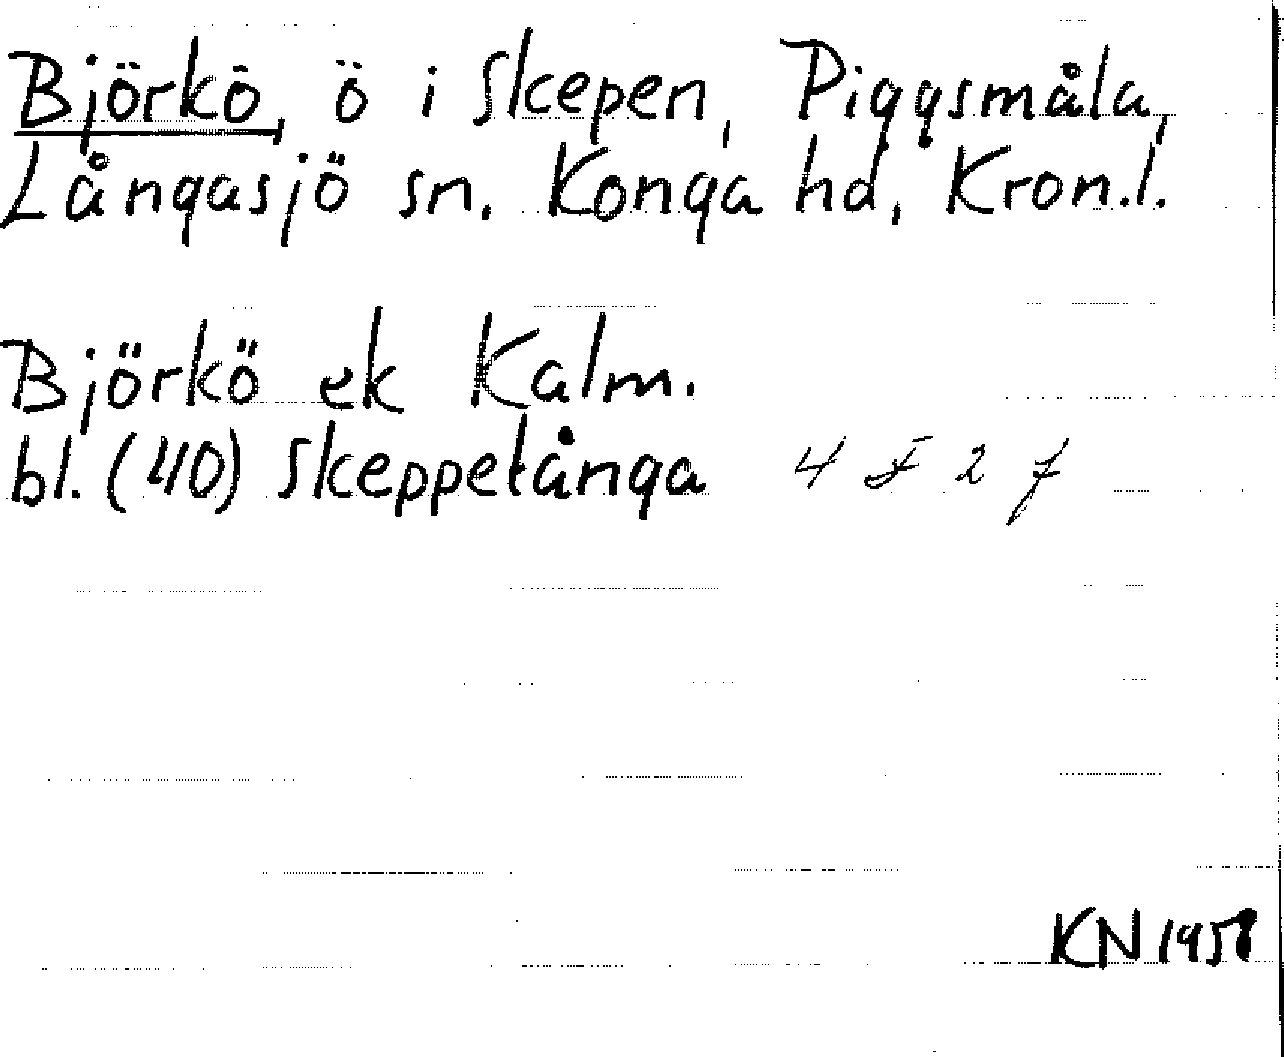 Björkö, ö i Skepen, Piggsmåla,
Långasjö sn. Konga hd, Kron.l.
Björkö ek Kalm.
bl. (40) Skeppetånga 4 F 2 f
KN